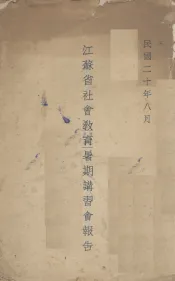 民國二十年八月
江蘇省社會教育暑期講習會報告